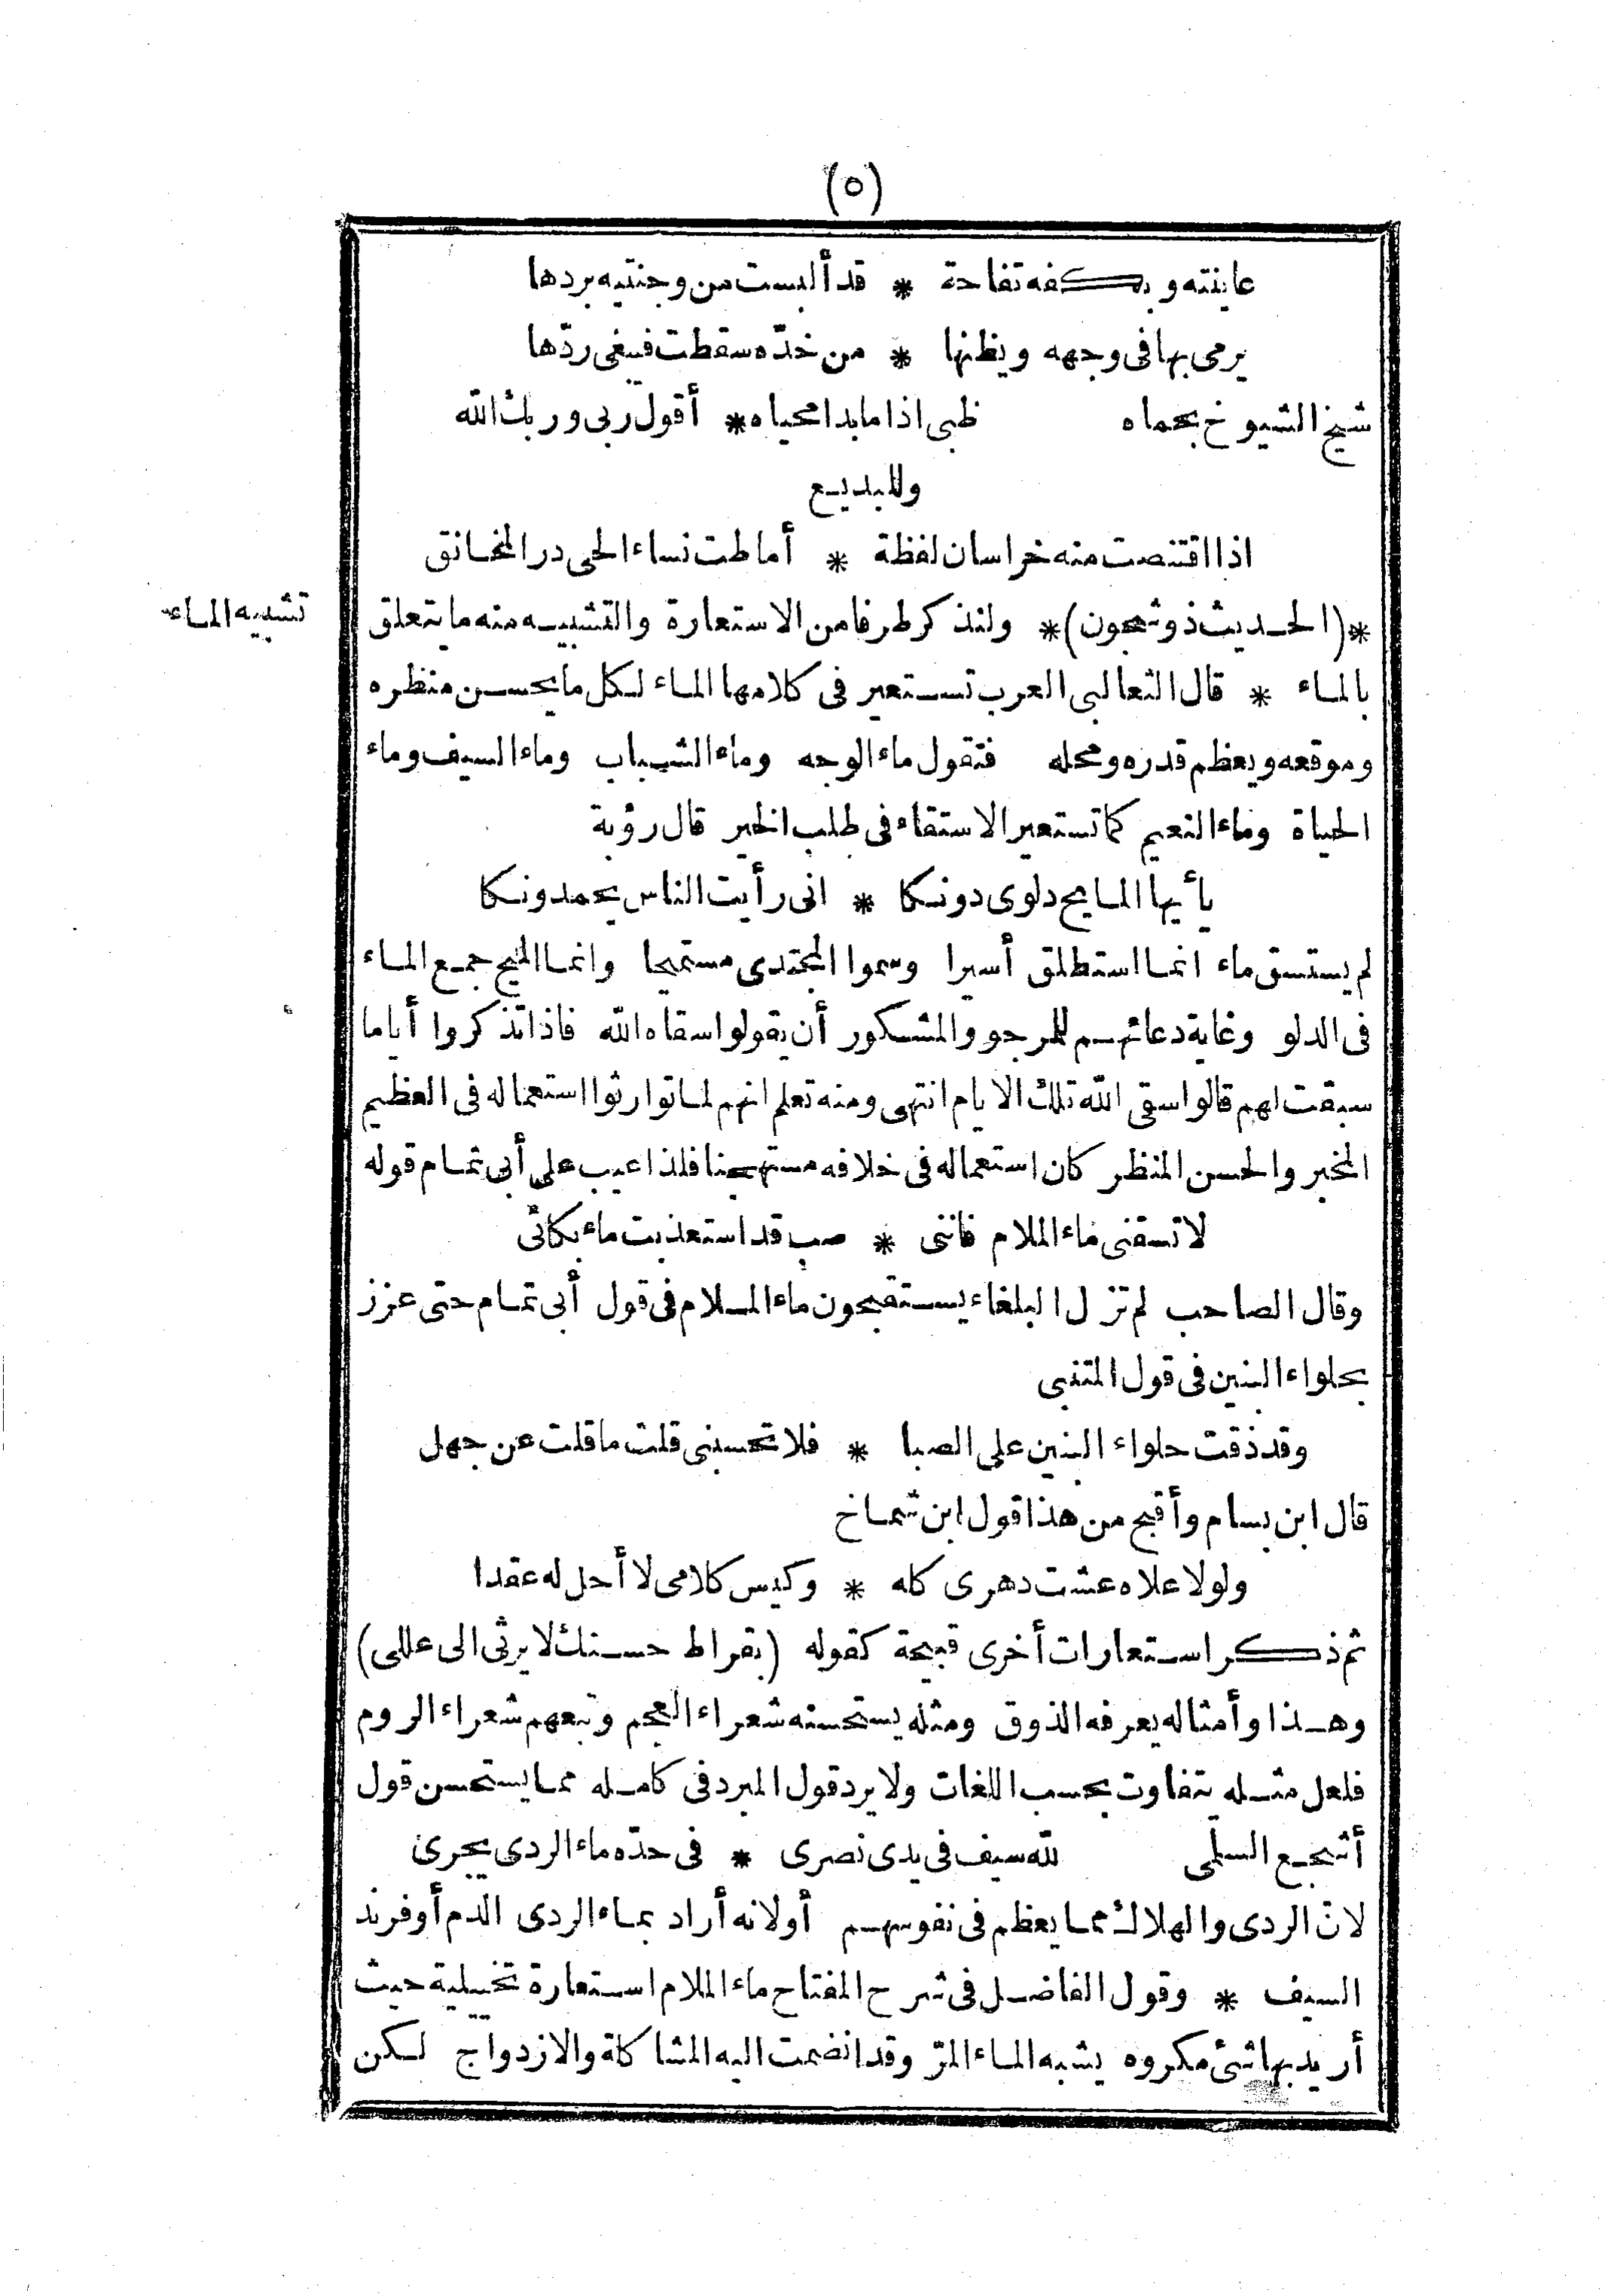 (٥)
عاينته وبكفه تفاحة * قد ألبست من وجنتيه بردها
يرمى بها فى وجهه ويظنها * من خدّه سقطت فيبغى ردّها
شيخ الشيوخ بحماه ظبى اذا ما بدا محياه * أقول ربى وربك الله
وللبديع
اذا اقتنصت منه خراسان لفظة * أماطت نساء الحى در المخانق
*(الحديث ذو شجون)* ولنذكر طرفا من الاستعارة والتشبيه منه ما يتعلق
تشبيه الماء
بالماء * قال الثعالبى العرب تستعير فى كلامها الماء لكل ما يحسن منظره
وموقعه ويعظم قدره ومحله فتقول ماء الوجه وماء الشباب وماء السيف وماء
الحياة وماء النعيم كما تستعير الاستقاء فى طلب الخير قال رؤبة
يأيها المايح دلوى دونكا * انى رأيت الناس يحمدونكا
لم يستسق ماء انما استطلق أسيرا وسموا المجتدى مستميحا وانما الميح جمع الماء
فى الدلو وغاية دعائهم للمرجو والمشكور أن يقولوا سقاه الله فاذا تذكروا أياما
سبقت لهم قالوا سقى الله تلك الايام انتهى ومنه تعلم انهم لما توارثوا استعماله فى العظيم
المخبر والحسن المنظر كان استعماله فى خلافه مستهجنا فلذا عيب على أبى تمام قوله
لا تسقنى ماء الملام فاننى * صب قد استعذبت ماء بكائى
وقال الصاحب لم تزل البلغاء يستقبحون ماء الملام فى قول أبى تمام حتى عزز
بحلواء البنين فى قول المتنبى
وقد ذقت حلواء البنين على الصبا * فلا تحسبنى قلت ما قلت عن جهل
قال ابن بسام وأقبح من هذا قول ابن شماخ
ولولا علاه عشت دهرى كله * وكيس كلامى لا أحل له عقدا
ثم ذكر استعارات أخرى قبيحة كقوله (بقراط حسنك لا يرثى الى عللى)
وهذا وأمثاله يعرفه الذوق ومثله يستحسنه شعراء العجم وتبعهم شعراء الروم
فلعل مثله يتفاوت بحسب اللغات ولا يرد قول المبرد فى كامله مما يستحسن قول
أشجع السلّمى لله سيف فى يدى نصرى * فى حدّه ماء الردى يجرى
لانّ الردى والهلاك مما يعظم فى نفوسهم أو لانه أراد بماء الردى الدم أو فرند
السيف * وقول الفاضل فى شرح المفتاح ماء الملام استعارة تخييلية حيث
أريد بها شئ مكروه يشبه الماء المرّ وقد انضمت اليه المشاكلة والازدواج لكن